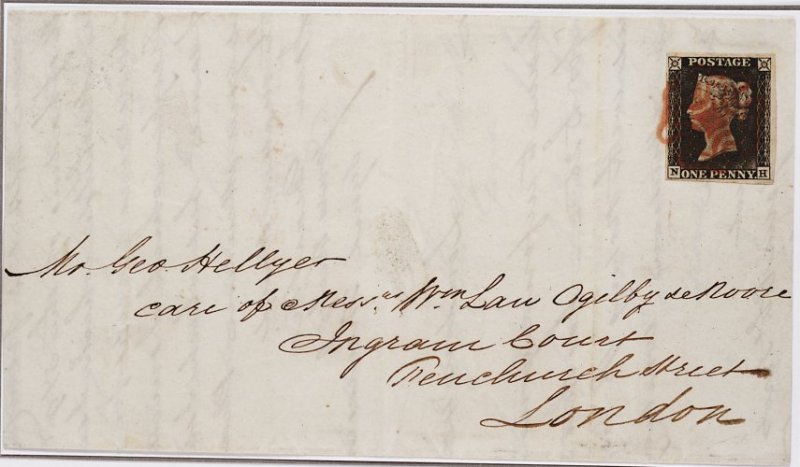 POSTAGE
N ONE PENNY H
Mr. Geo Hellyer
care of Mess,rs Wm Law Ogilby
Ingram Court
Fenchurch Street
London